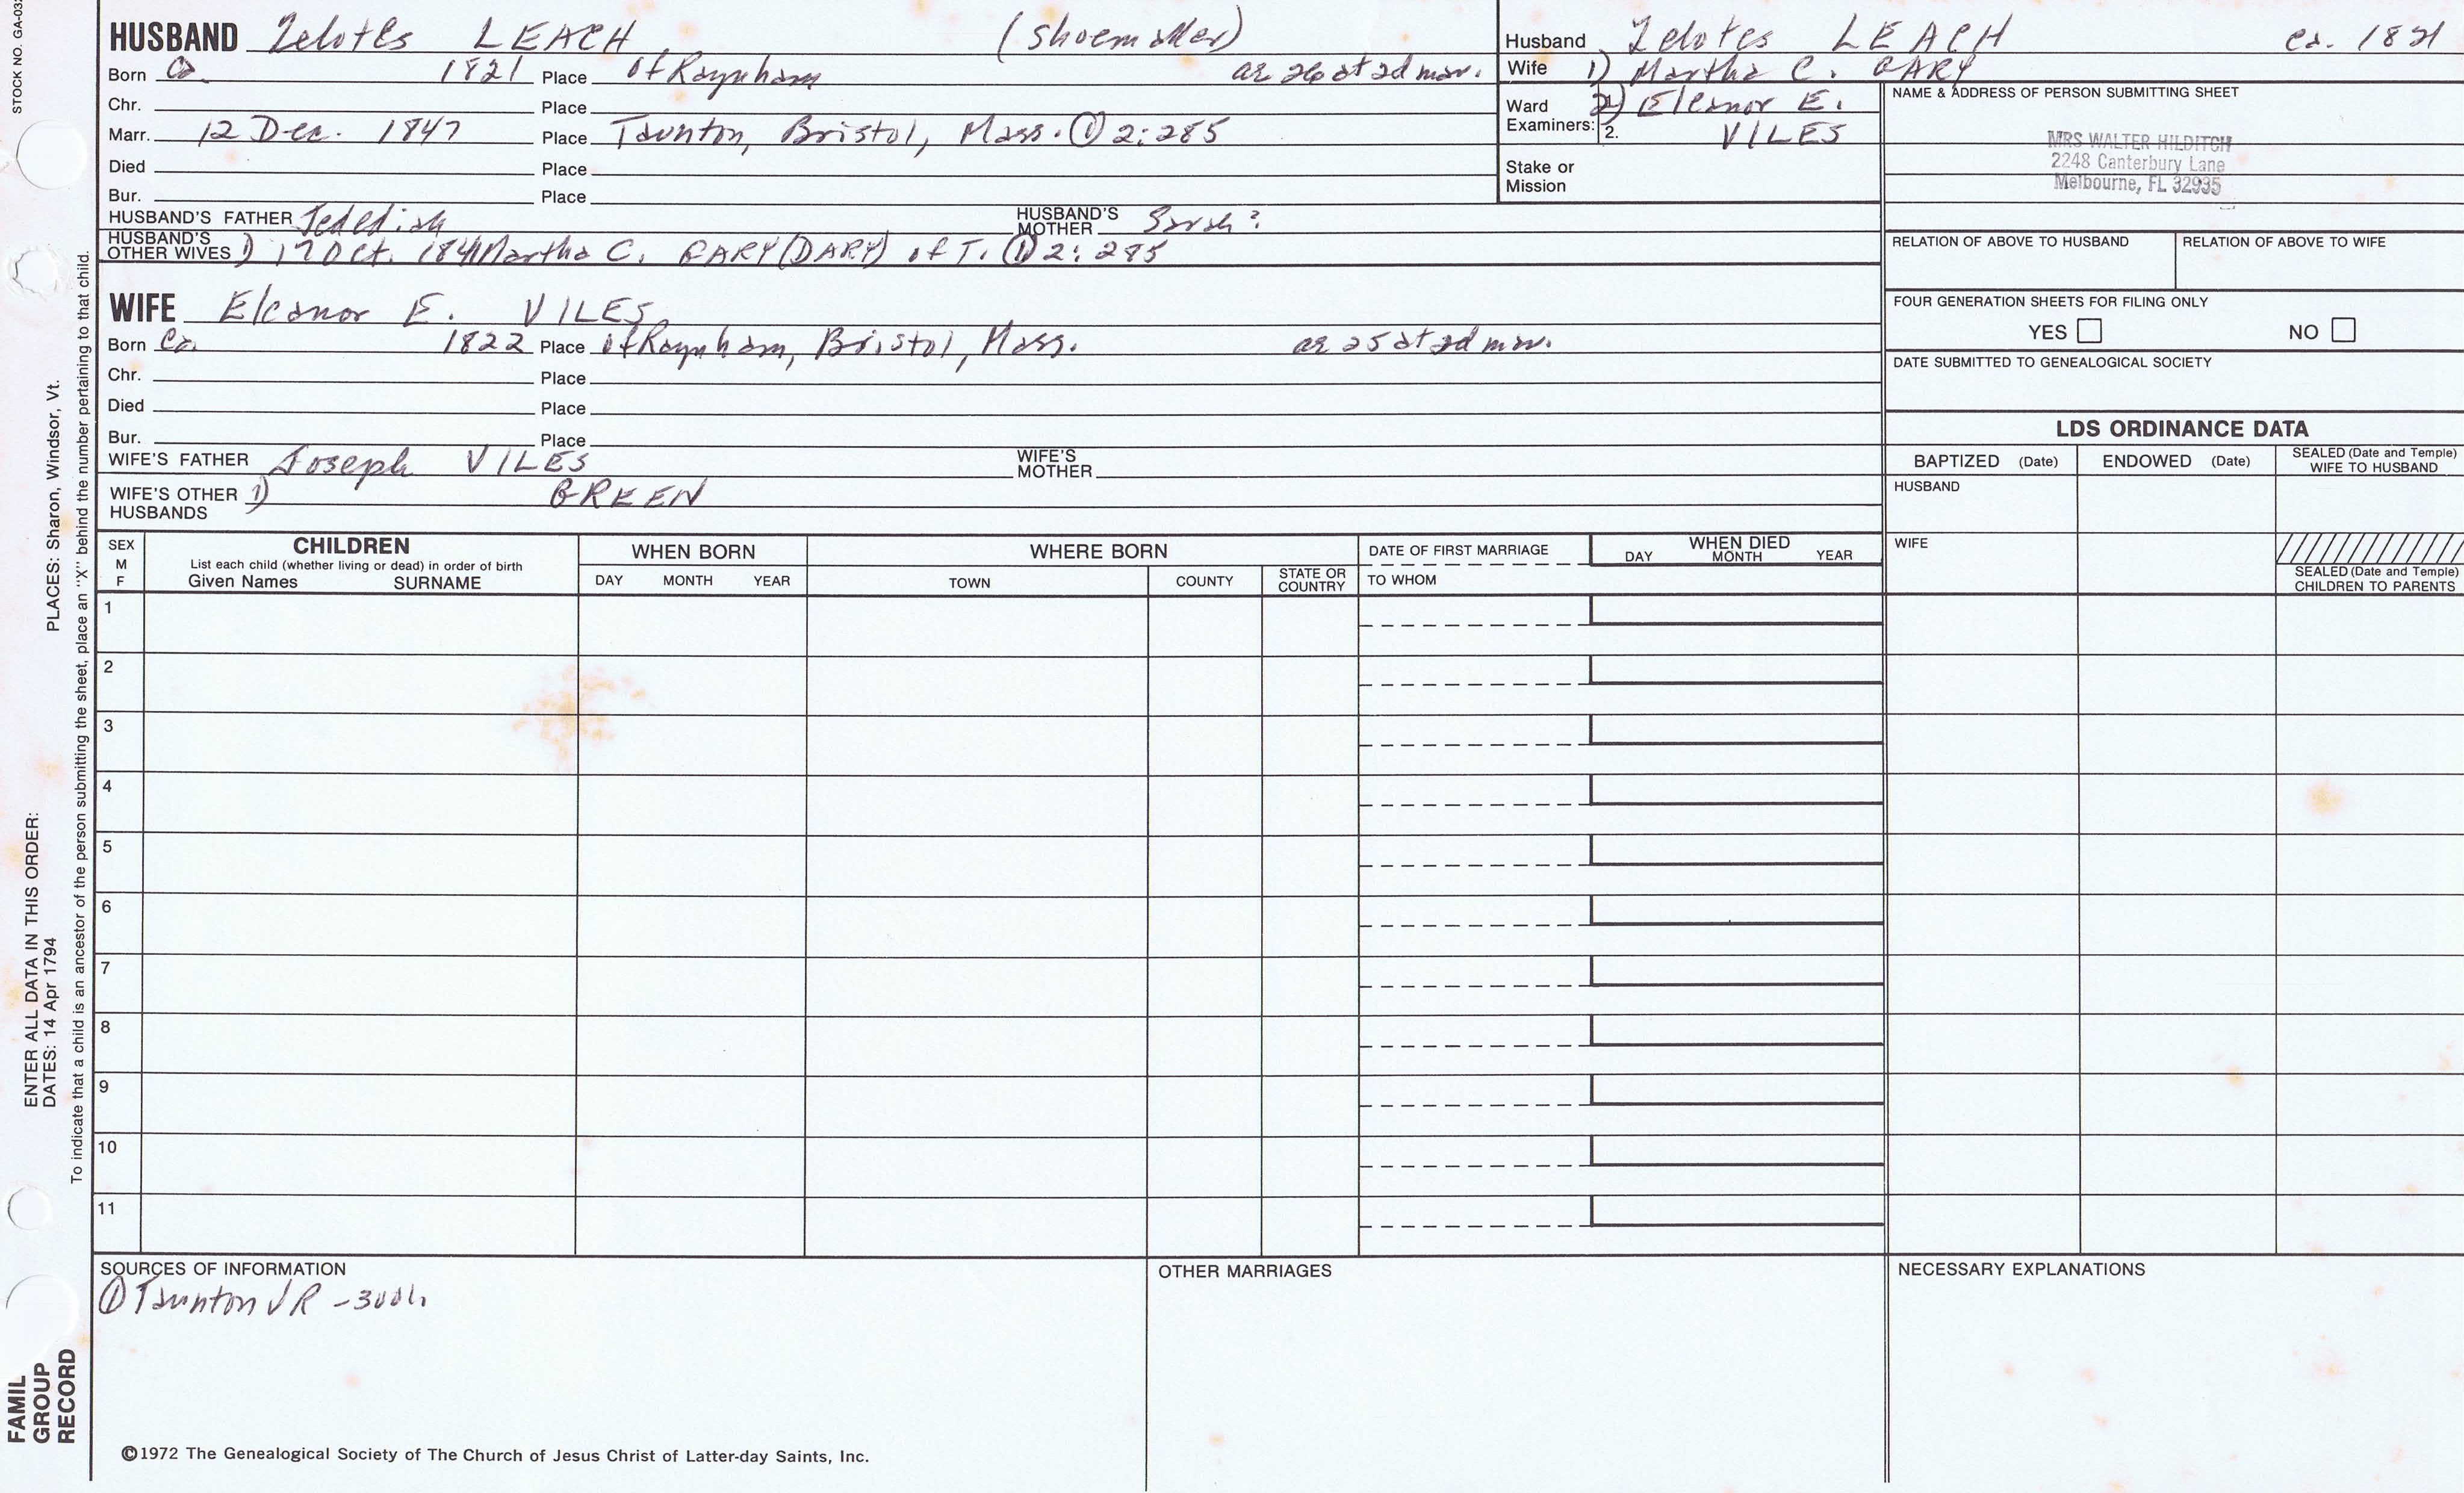 STOCK NO. GA-03
HUSBAND Zelotes LEACH (Shoemaker)
Born Ca 1821 Place of Raynham ae 26 at 2d mar.
Chr. Place
Marr. 12 Dec. 1847 Place Taunton, Bristol, Mass. ① 2:285
Died Place
Bur. Place
HUSBAND'S FATHER Jedediah HUSBAND'S MOTHER Sarah?
HUSBAND'S OTHER WIVES 1) 17 Oct. 1841 Martha C. CARY (DARY) of T. ① 2:285
Husband Zelotes LEACH ca. 1821
Wife 1) Martha C. CARY
Ward Examiners: 2) Eleanor E.
2. VILES
Stake or Mission
NAME & ADDRESS OF PERSON SUBMITTING SHEET
MRS WALTER HILDITCH
2248 Canterbury Lane
Melbourne, FL 32935
RELATION OF ABOVE TO HUSBAND RELATION OF ABOVE TO WIFE
FOUR GENERATION SHEETS FOR FILING ONLY
YES NO
DATE SUBMITTED TO GENEALOGICAL SOCIETY
WIFE Eleanor E. VILES
Born Ca. 1822 Place of Raynham, Bristol, Mass. ae 25 at 2d mar.
Chr. Place
Died Place
Bur. Place
WIFE'S FATHER Joseph VILES WIFE'S MOTHER
WIFE'S OTHER HUSBANDS 1) GREEN
LDS ORDINANCE DATA
BAPTIZED (Date) ENDOWED (Date) SEALED (Date and Temple) WIFE TO HUSBAND
HUSBAND
WIFE
SEALED (Date and Temple) CHILDREN TO PARENTS
SEX M F
CHILDREN
List each child (whether living or dead) in order of birth
Given Names SURNAME
WHEN BORN
DAY MONTH YEAR
WHERE BORN
TOWN COUNTY STATE OR COUNTRY
DATE OF FIRST MARRIAGE
TO WHOM
WHEN DIED
DAY MONTH YEAR
1
2
3
4
5
6
7
8
9
10
11
SOURCES OF INFORMATION
① Taunton VR
OTHER MARRIAGES
NECESSARY EXPLANATIONS
©1972 The Genealogical Society of The Church of Jesus Christ of Latter-day Saints, Inc.
ENTER ALL DATA IN THIS ORDER:
DATES: 14 Apr 1794 PLACES: Sharon, Windsor, Vt.
To indicate that a child is an ancestor of the person submitting the sheet, place an "X" behind the number pertaining to that child.
FAMIL
GROUP
RECORD